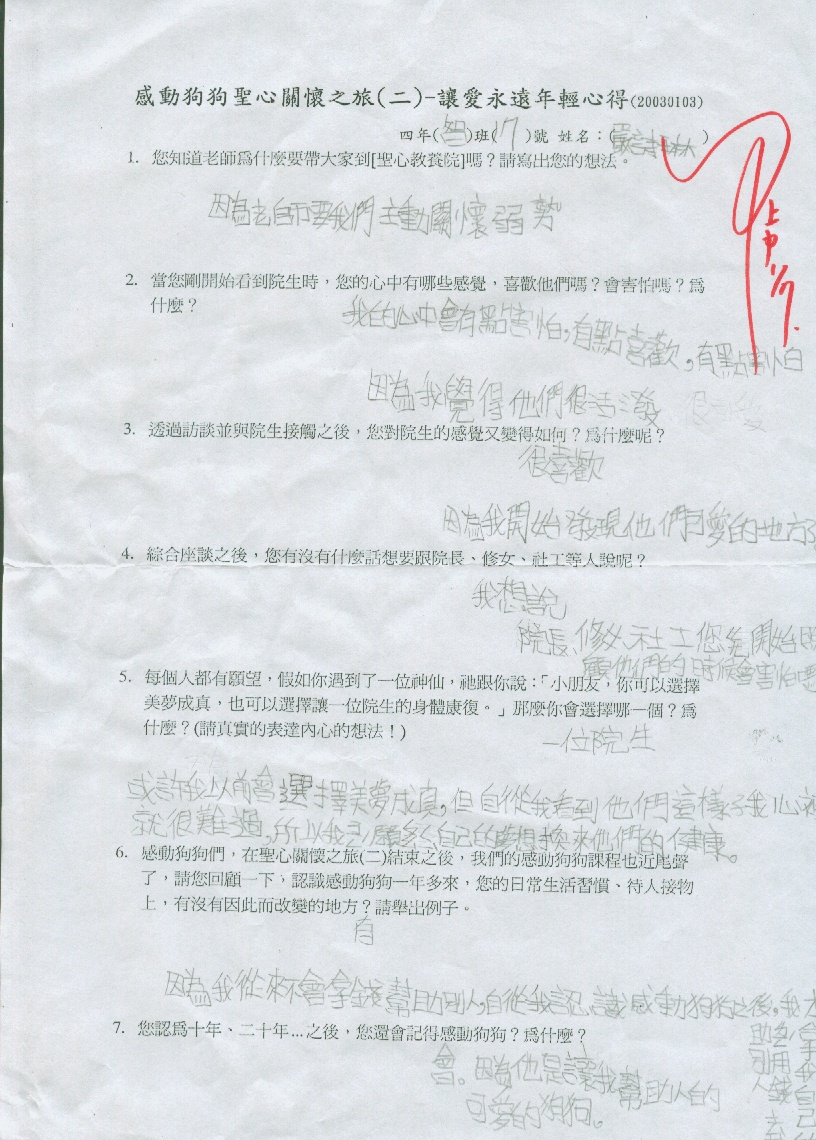 感動狗狗聖心關懷之旅(二)-讓愛永遠年輕心得(20030103)
四年(智)班(17)號 姓名：( )
上中 1/7.
1. 您知道老師爲什麼要帶大家到[聖心教養院]嗎？請寫出您的想法。
因為老師要我們主動關懷弱勢
2. 當您剛開始看到院生時，您的心中有哪些感覺，喜歡他們嗎？會害怕嗎？爲
什麼？
我的心中會有點害怕，有點喜歡，有點害怕
因為我覺得他們很活潑
3. 透過訪談並與院生接觸之後，您對院生的感覺又變得如何？爲什麼呢？
很喜歡
因為我開始發現他們可愛的地方
4. 綜合座談之後，您有沒有什麼話想要跟院長、修女、社工等人說呢？
我想說
院長、修女、社工您們開始照
顧他們的時候會害怕嗎
5. 每個人都有願望，假如你遇到了一位神仙，祂跟你說：「小朋友，你可以選擇
美夢成真，也可以選擇讓一位院生的身體康復。」那麼你會選擇哪一個？爲
什麼？(請真實的表達內心的想法！)
一位院生
或許我以前會選擇美夢成真，但自從我看到他們這樣子我心就
就很難過，所以我願 自己的夢想換來他們的健康。
6. 感動狗狗們，在聖心關懷之旅(二)結束之後，我們的感動狗狗課程也近尾聲
了，請您回顧一下，認識感動狗狗一年多來，您的日常生活習慣、待人接物
上，有沒有因此而改變的地方？請舉出例子。
有
因為我從來不會拿錢幫助別人，自從我認識感動狗狗之後，我
7. 您認爲十年、二十年...之後，您還會記得感動狗狗？爲什麼？
會。因為他是讓我幫助人的
可愛的狗狗。